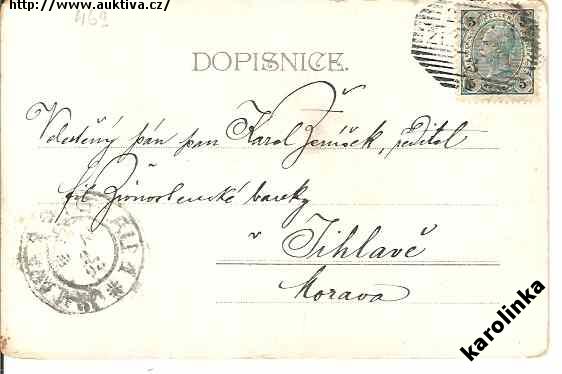 http://www.auktiva.cz/
469
DOPISNICE.
Velectěný pán pan Karel Ženíšek, ředitel
fil Živnostenské banky
v Jihlavě
Morava
karolinka